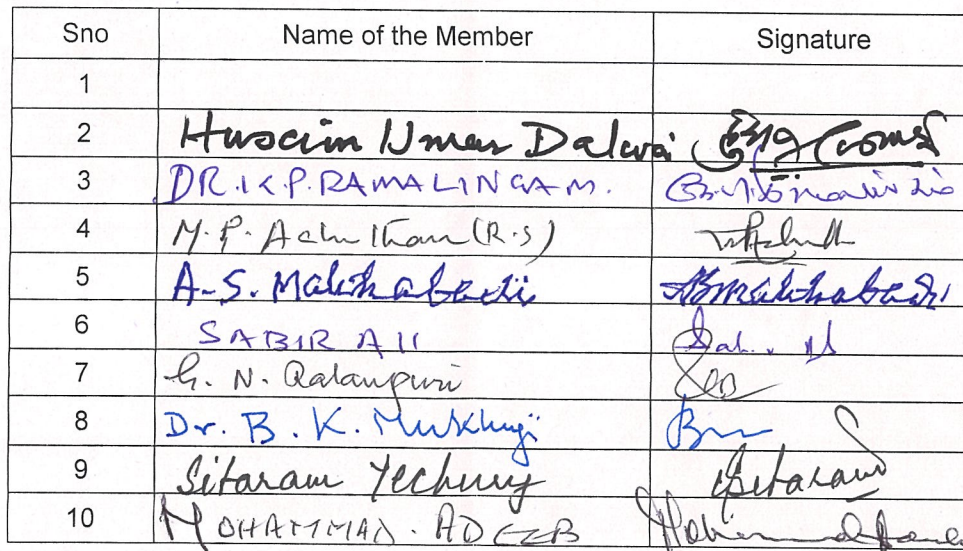 Sno Name of the Member Signature
1
2 Husain Umar Dalwai
3 DR. K.P. RAMALINGAM.
4 M.P. Achuthan (R.S)
5 A.S. Malihabadi ASmalihabadi
6 SABIR ALI Sabir Ali
7 G. N. Ratanpuri
8 Dr. B. K. Mukherji
9 Sitaram Yechury Sitaram
10 MOHAMMAD. ADEEB